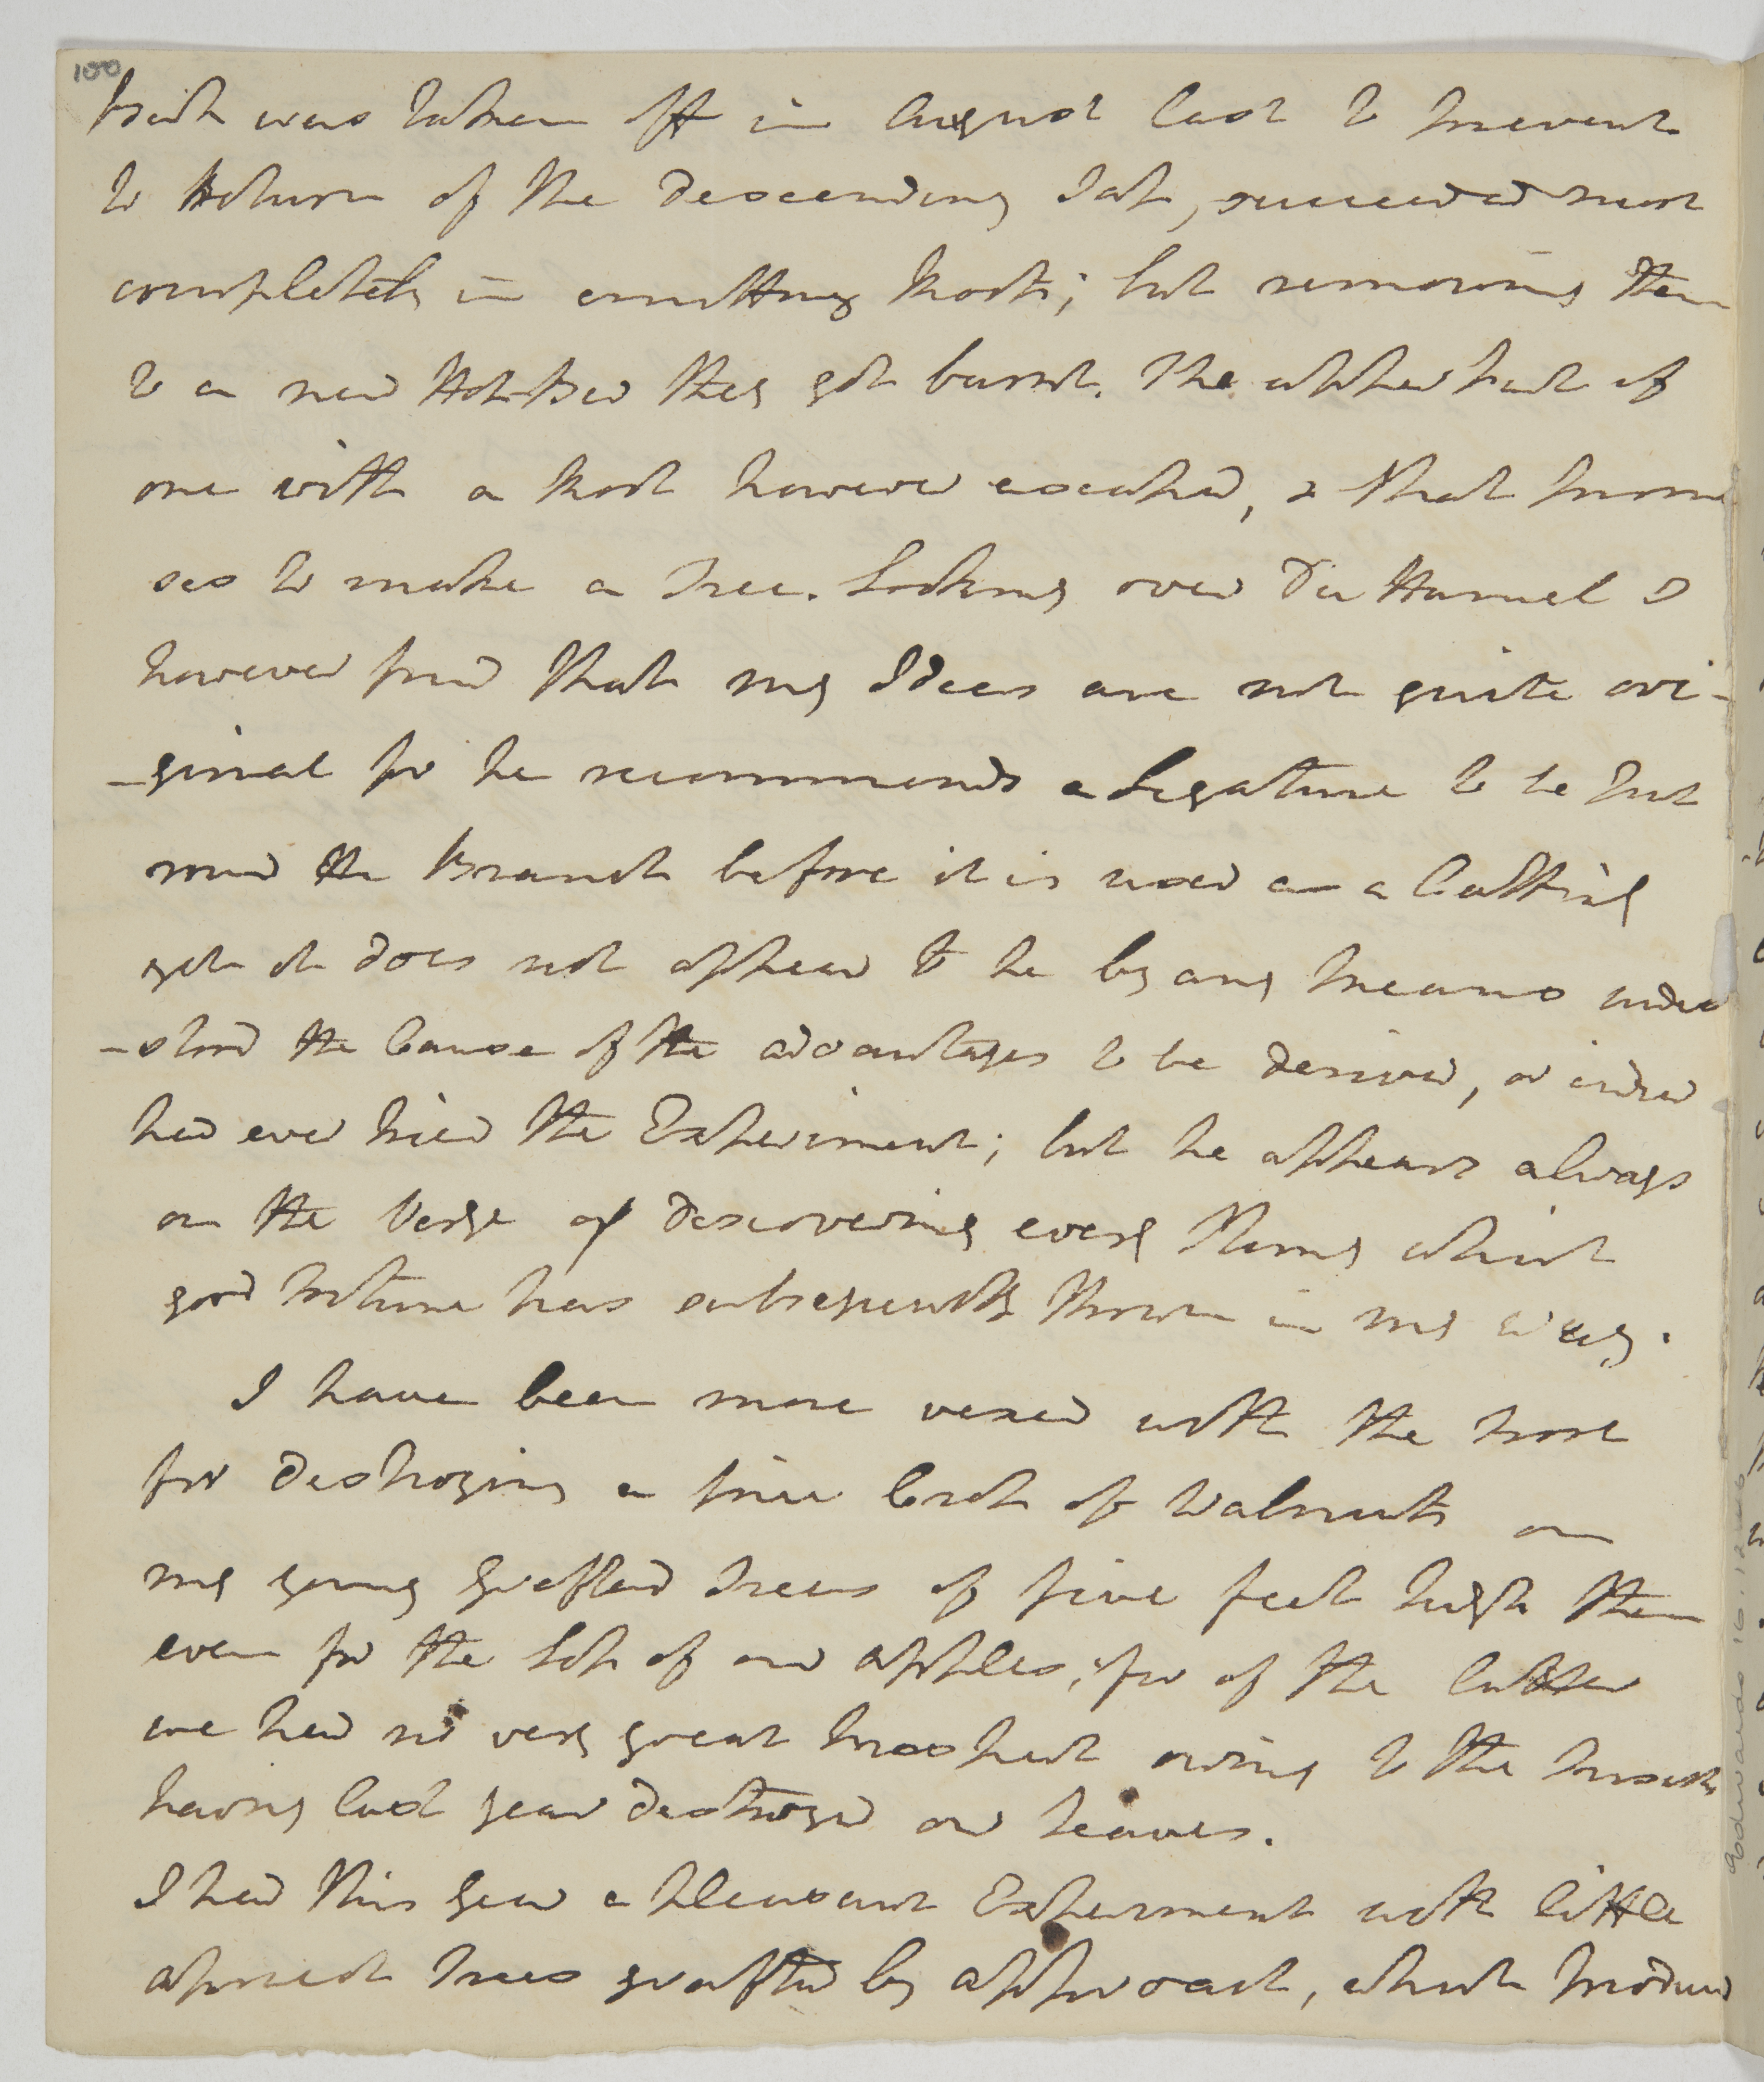 100
Bark was taken off in August last to prevent
to Return of the descending Sap, succeeded most
completely in emitting Roots; but removing them
to a new Hot-Bed they got burnt. The upper part of
one with a Root however escaped, & that promi
ses to make a Tree. Looking over Du Hamel I
however find that my Ideas are not quite ori-
-ginal for he recommends a Ligature to be put
round the Branch before it is used as a Cutting
yet it does not appear to he by any means under
-stood the Cause of the advantages to be derived, or indeed
had ever tried the Experiment; but he appears always
on the Verge of discovering every Thing which
good fortune has subsequently thrown in my way.
I have been more vexed with the frost
for destroying a fine Crop of Walnuts on
my young Grafted trees of five feet high than
even for the Loss of our apples, for of the latter
we had no very great prospect owing to the Insects
having last year destroyed our leaves.
I had this year a pleasant Experiment with little
apricot trees grafted by approach, which produced
Goodwards 16.12.46